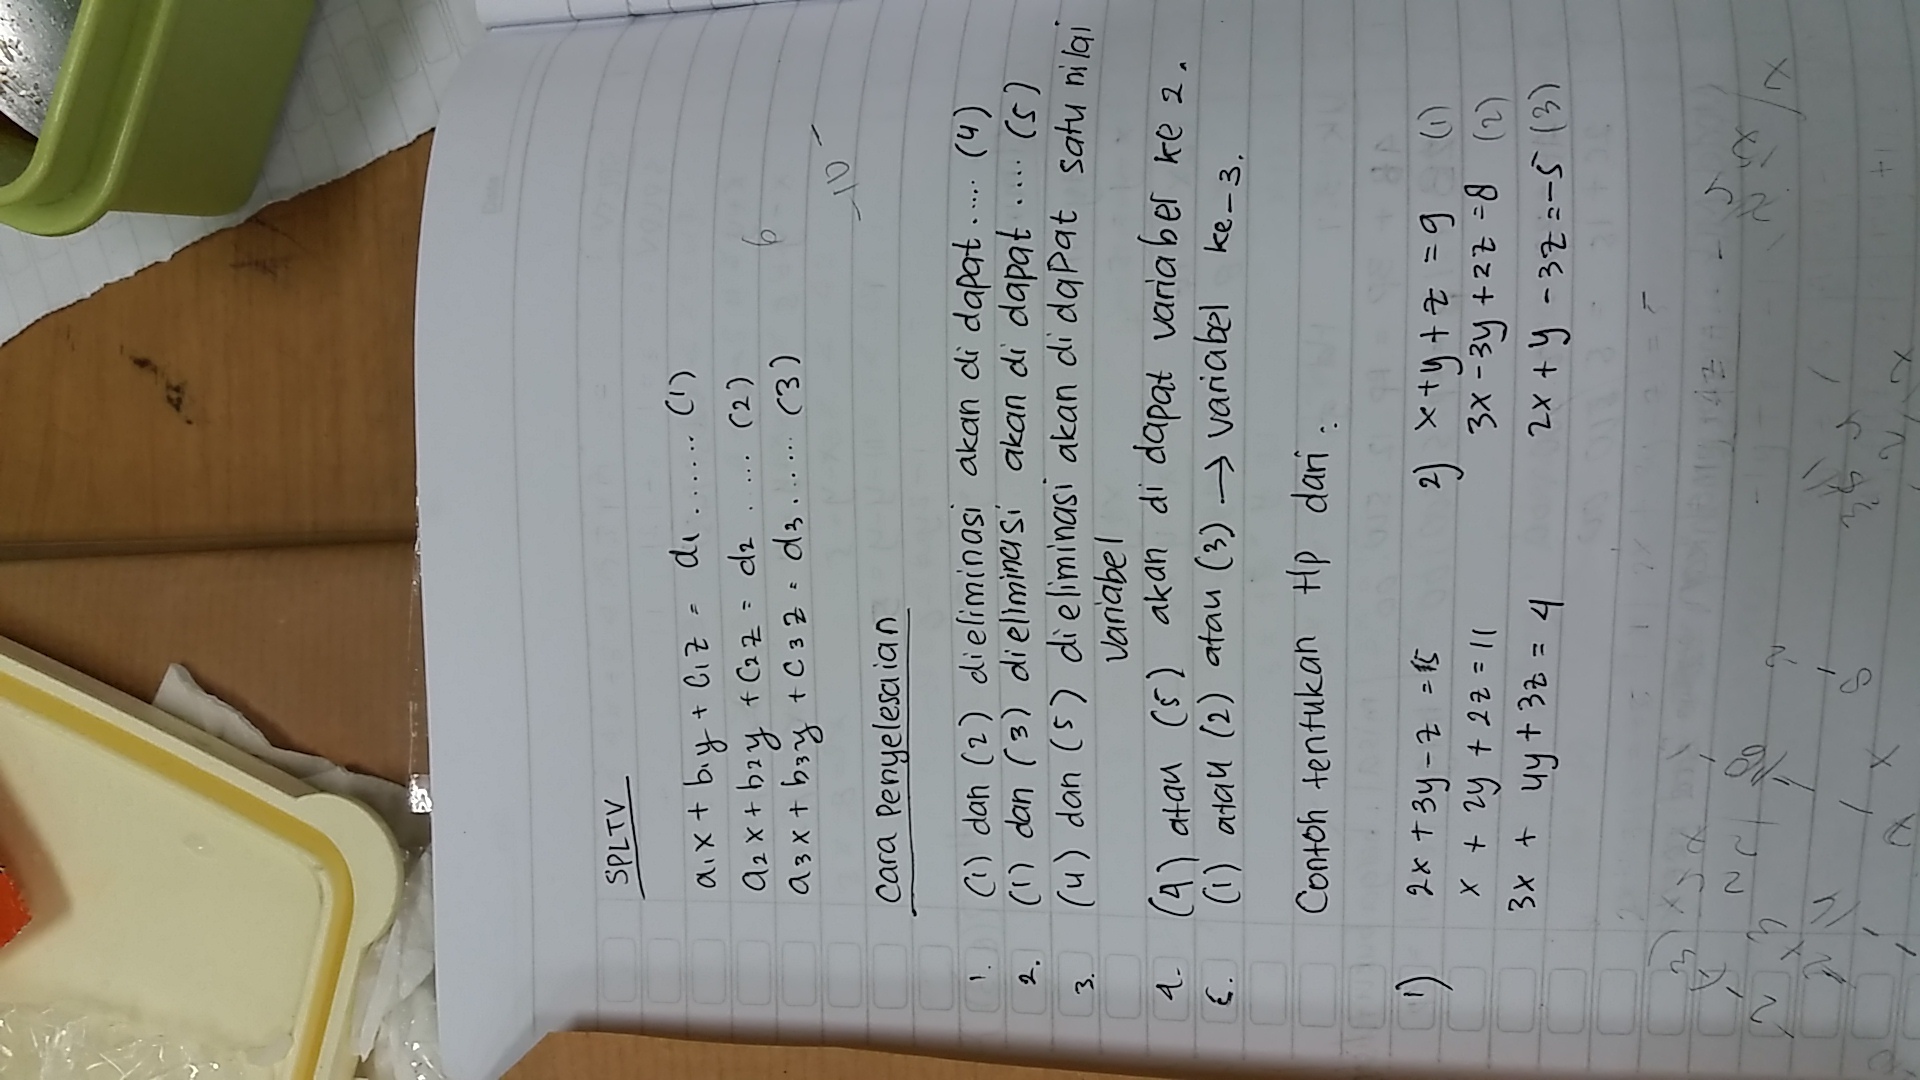 SPLTV
a1x + b1y + C1Z = d1 ...... (1)
a2x + b2y + C2Z = d2 ..... (2)
a3x + b3y + C3Z = d3 ...... (3)
6
-10
Cara Penyelesaian
1. (1) dan (2) dieliminasi akan di dapat ..... (4)
2. (1) dan (3) dieliminasi akan di dapat .... (5)
3. (4) dan (5) dieliminasi akan di dapat satu nilai
variabel
4. (4) atau (5) akan di dapat variaber ke 2.
5. (1) atau (2) atau (3) → variabel ke-3.
Contoh tentukan Hp dari :
1) 2x + 3y - z = 15 2) x+y+z = 9 (1)
x + 2y + 2z = 11 3x - 3y + 2z = 8 (2)
3x + 4y + 3z = 4 2x + y - 3z = -5 (3)